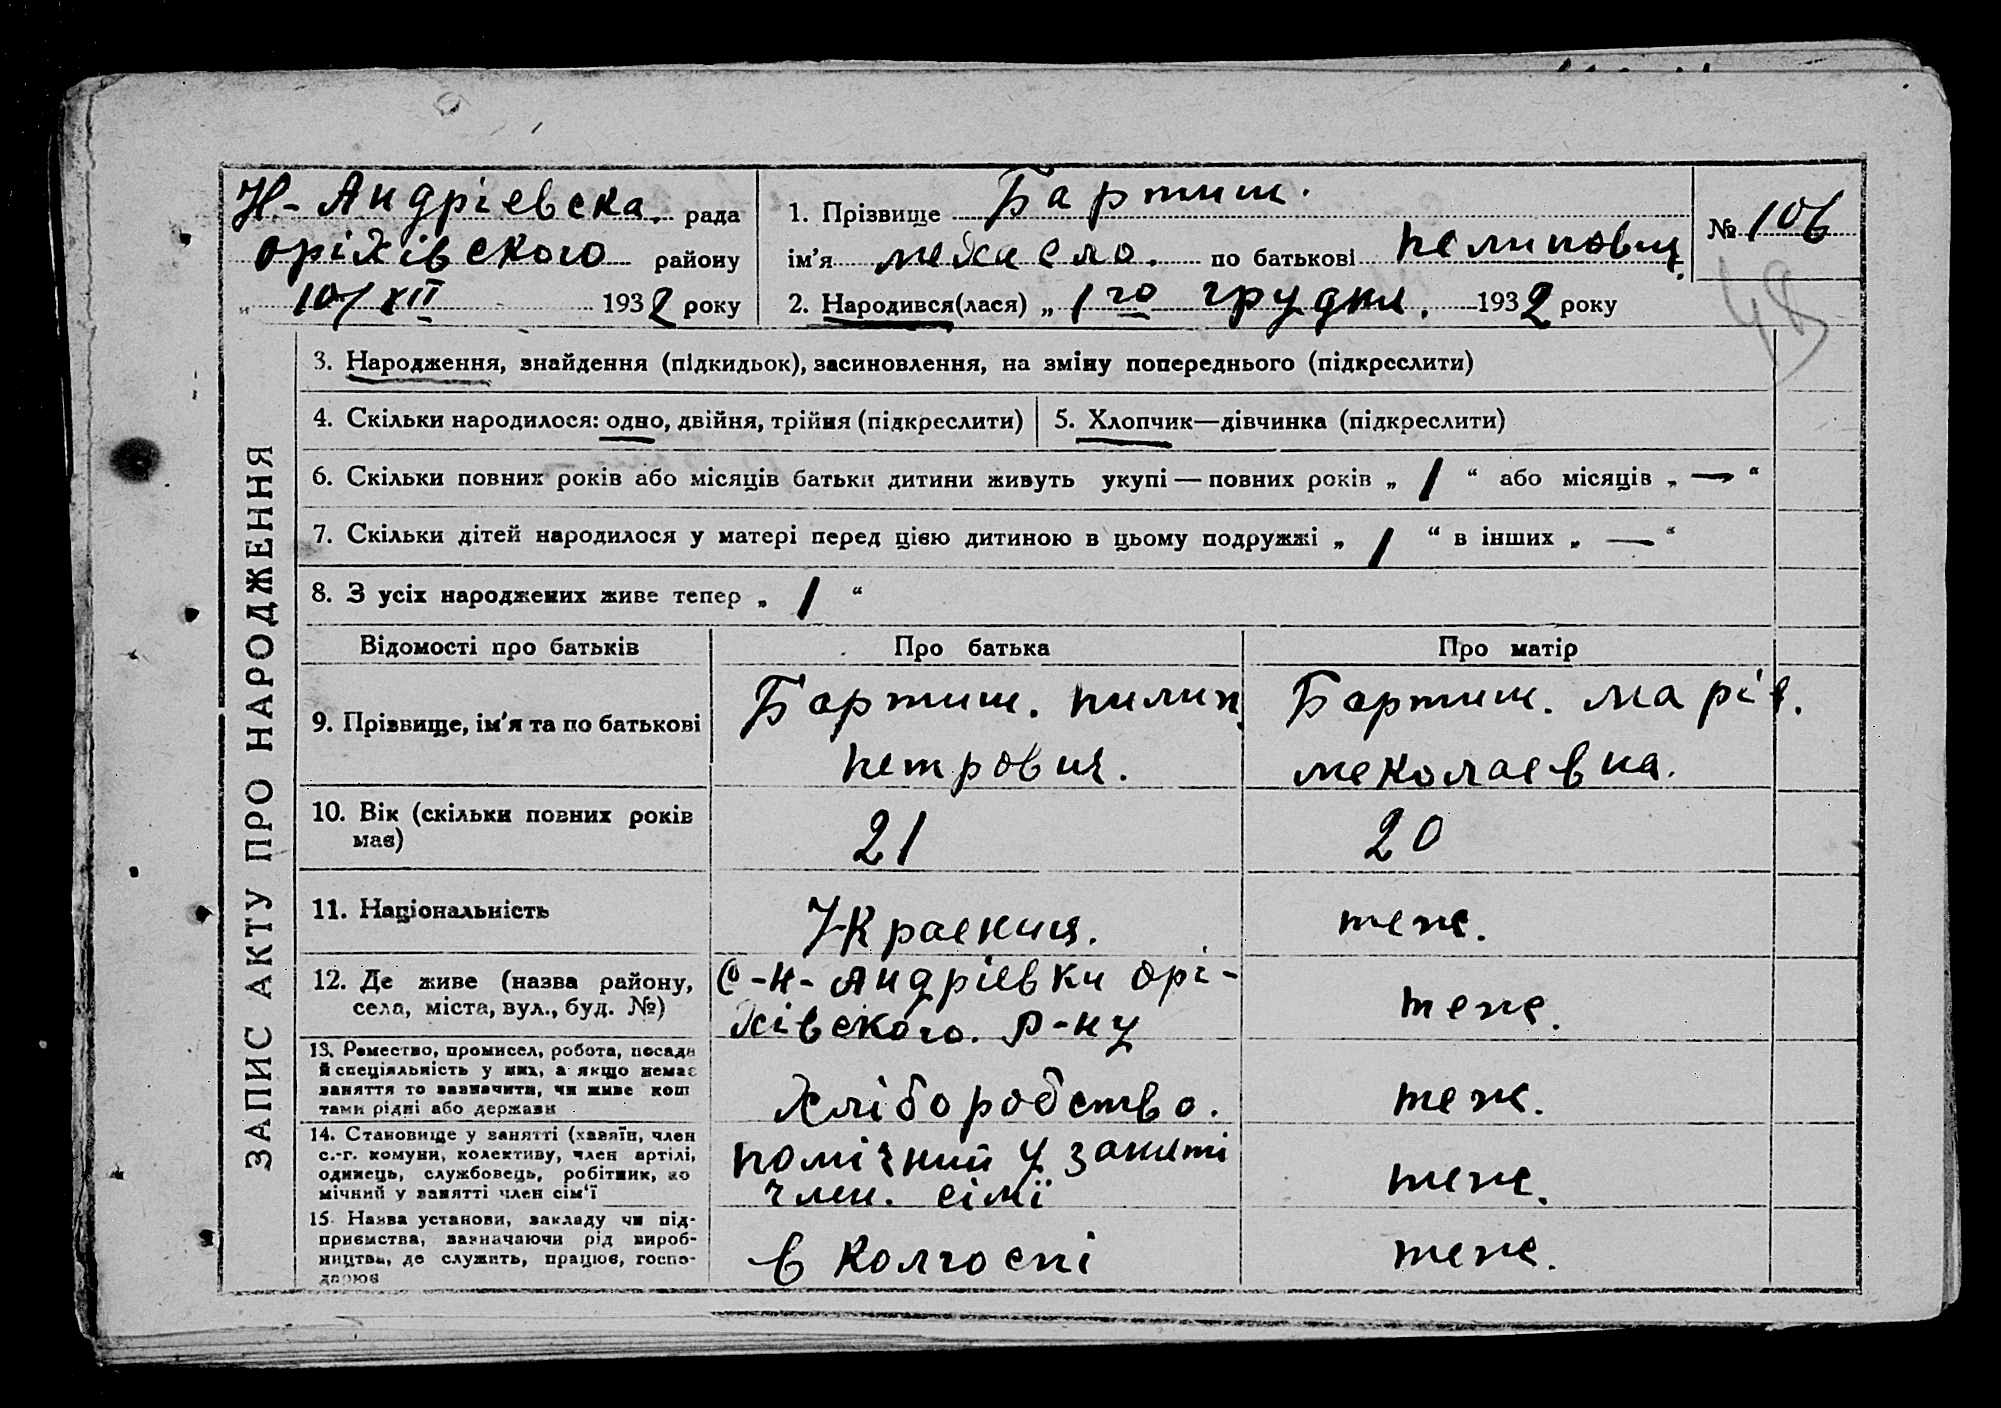 Н-Андріевска. рада
оріхівського району
„ 10/XII 1932 року
1. Прізвище Бартиш.
ім'я мехаело. по батькові пелипович.
2. Народився(лася) „ 1го грудня. 1932 року
№ 106
48
ЗАПИС АКТУ ПРО НАРОДЖЕННЯ
3. Народження, знайдення (підкидьок), засиновлення, на зміну попереднього (підкреслити)
4. Скільки народилося: одно, двійня, трійня (підкреслити)
5. Хлопчик—дівчинка (підкреслити)
6. Скільки повних років або місяців батьки дитини живуть укупі — повних років „ 1 “ або місяців „ — “
7. Скільки дітей народилося у матері перед цією дитиною в цьому подружжі „ 1 “ в інших „ — “
8. З усіх народжених живе тепер „ 1 “
Відомості про батьків
Про батька
Про матір
9. Прізвище, ім'я та по батькові
Бартиш. пилип.
петрович.
Бартиш. марія.
меколаевна.
10. Вік (скільки повних років
має)
21
20
11. Національність
Украениц.
теж.
12. Де живе (назва району,
села, міста, вул., буд. №)
С-Н-Андріевки орі-
хівського. р-ну
теж.
13. Ремество, промисел, робота, посада
й спеціяльність у них, а якщо немає
заняття то зазначити, чи живе кош
тами рідні або держави
хліборобство.
теж.
14. Становище у занятті (хазяїн, член
с.-г. комуни, колективу, член артілі,
одинець, службовець, робітник, по
мічний у занятті член сім'ї
помічний у заняті
член. сімї
теж.
15. Назва установи, закладу чи під-
приємства, зазначаючи рід вироб-
ництва, де служить, працює, госпо-
дарює
в колгоспі
теж.